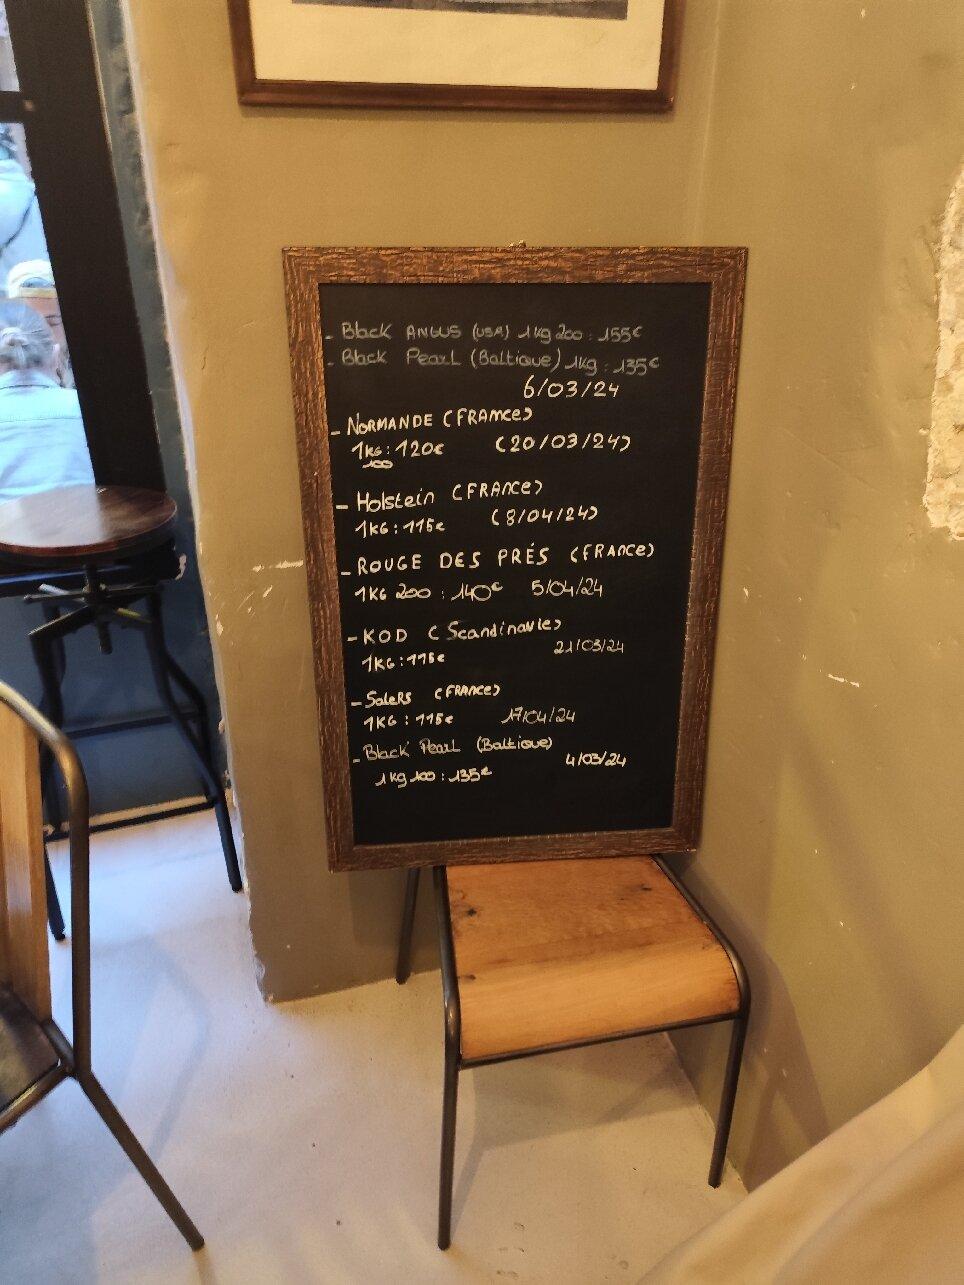 - Black ANGUS (USA) 1kg 200 : 155€
- Black Pearl (Baltique) 1kg : 135€
6/03/24
- NORMANDE (FRANCE)
1KG : 120€ (20/03/24)
100
- Holstein (FRANCE)
1KG : 115€ (8/04/24)
- ROUGE DES PRÉS (FRANCE)
1KG 200 : 140€ 5/04/24
- KOD (Scandinavie)
1KG : 115€ 21/03/24
- SaleRS (FRANCE)
1KG : 115€ 17/04/24
- Black Pearl (Baltique)
1kg 100 : 135€ 4/03/24